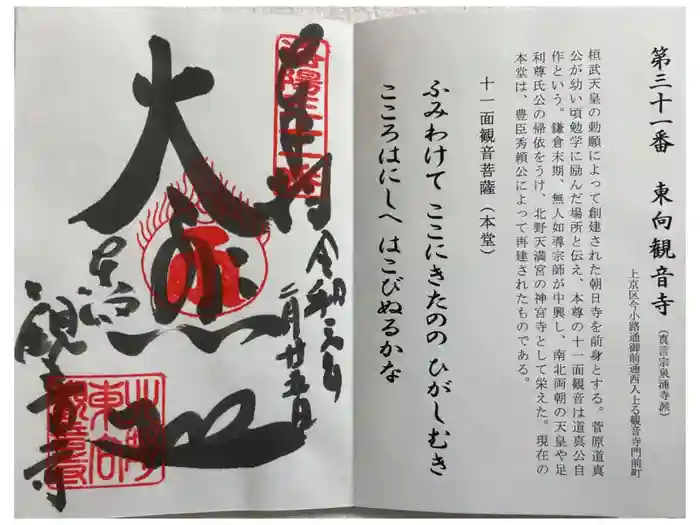 第三十一番 東向観音寺(真言宗泉涌寺派)
上京区今小路通御前通西入上る観音寺門前町
桓武天皇の勅願によって創建された朝日寺を前身とする。菅原道真
公が幼い頃勉学に励んだ場所と伝え、本尊の十一面観音は道真公自
作という。鎌倉末期、無人如導宗師が中興し、南北両朝の天皇や足
利尊氏公の帰依をうけ、北野天満宮の神宮寺として栄えた。現在の
本堂は、豊臣秀頼公によって再建されたものである。
十一面観音菩薩(本堂)
ふみわけて ここにきたのの ひがしむき
こころはにしへ はこびぬるかな
奉拝
令和二年
二月廿五日
大悲
東向
観音寺